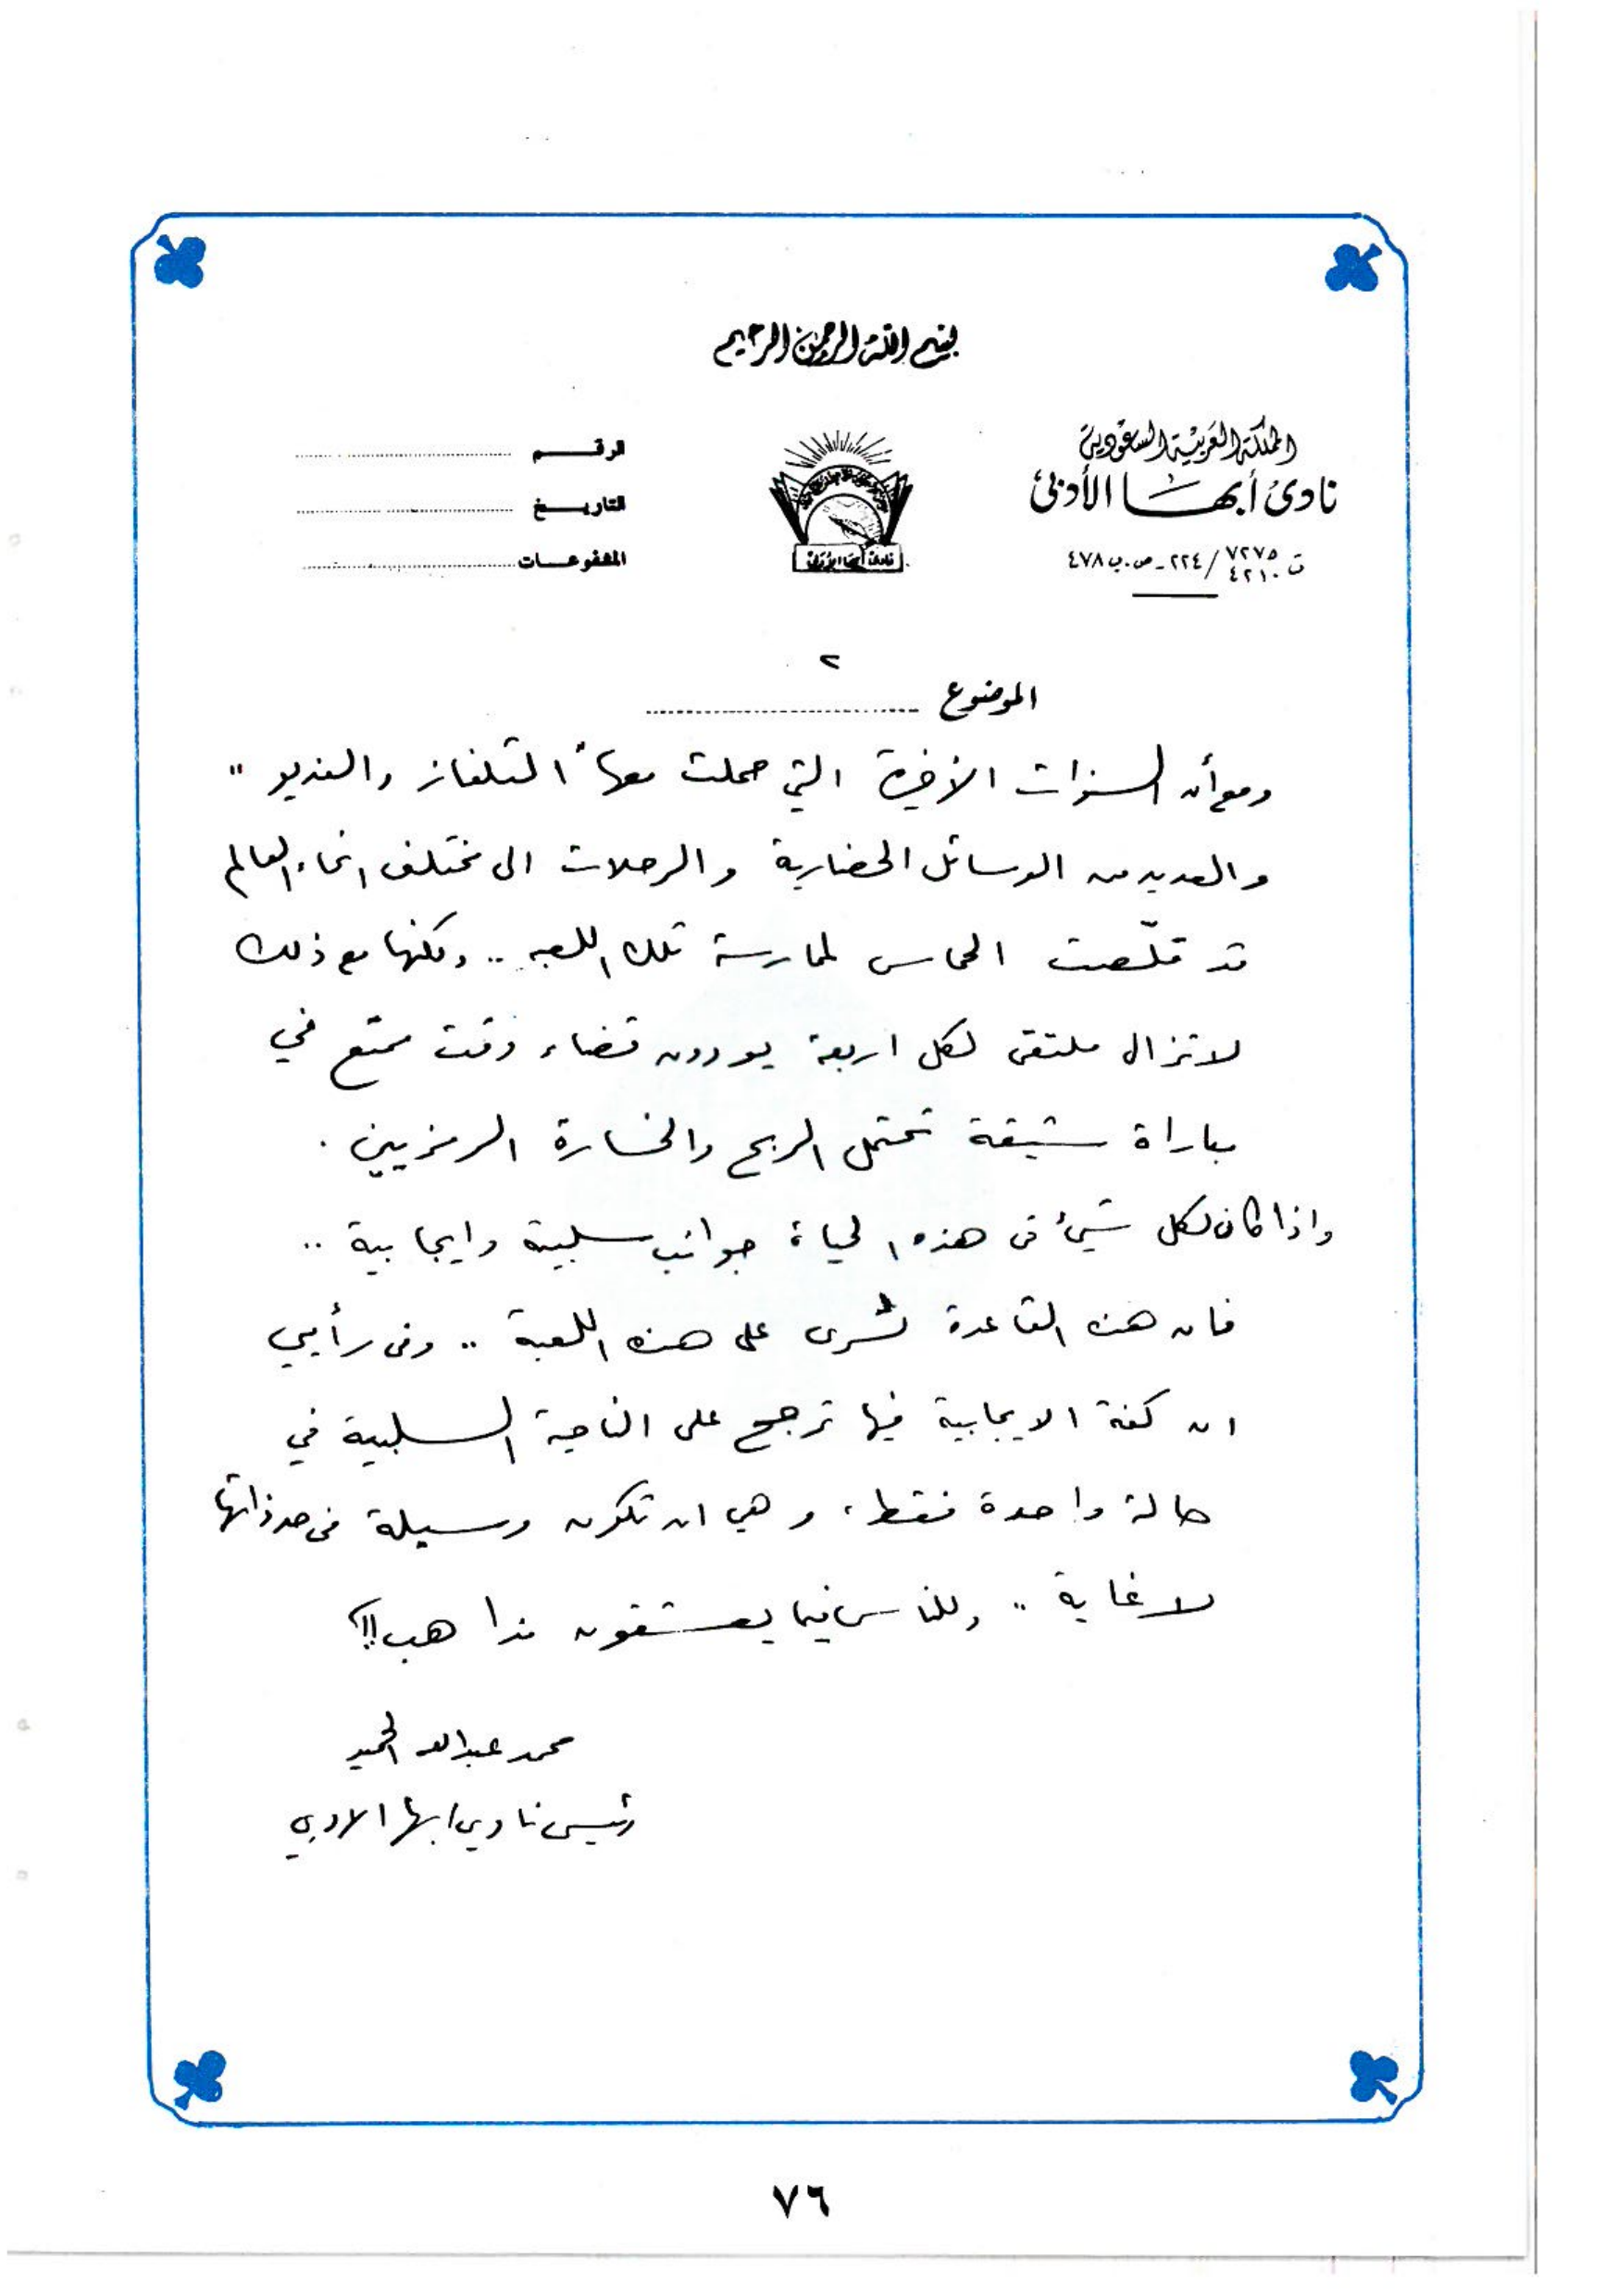 بسم الله الرحمن الرحيم
المملكة العربية السعودية
نادي أبها الأدبي
ت ٧٢٧٥ / ٤٢١٠ / ٢٢٤ - ص.ب ٤٧٨
نادي أبها الأدبي
الرقم
التاريخ
المشفوعات
٢
الموضوع
ومع أن السنوات الأخيرة التي حملت معها "التلفاز والفديو"
والعديد من الوسائل الحضارية والرحلات الى مختلف انحاء العالم
قد قلّصت الحماس لممارسة تلك اللعبه .. ولكنها مع ذلك
لا تزال ملتقى لكل اربعة يودون قضاء وقت ممتع في
مباراة شيقة تحتمل الربح والخسارة الرمزيين .
واذا كان لكل شيئ في هذه الحياة جوانب سلبية وايجابية ..
فان هذه القاعدة تسرى على هذه اللعبة .. وفى رأيي
ان كفة الايجابية فيها ترجح على الناحية السلبية في
حالة واحدة فقط، وهي ان تكون وسيلة فى حد ذاتها
لا غاية .. وللناس فيما يعشقون مذاهب!!؟
محمد عبدالله الحميد
رئيس نادي ابها الادبي
٧٦